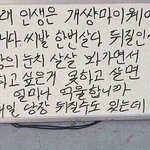 래 인생은 개썅마이웨이
니다. 씨발 한번살다 뒤질인생
의 눈치 살살 봐가면서
하고 싶은거 못하고 살면
얼마나 억울합니까
내일 당장 뒤질수도 있는데